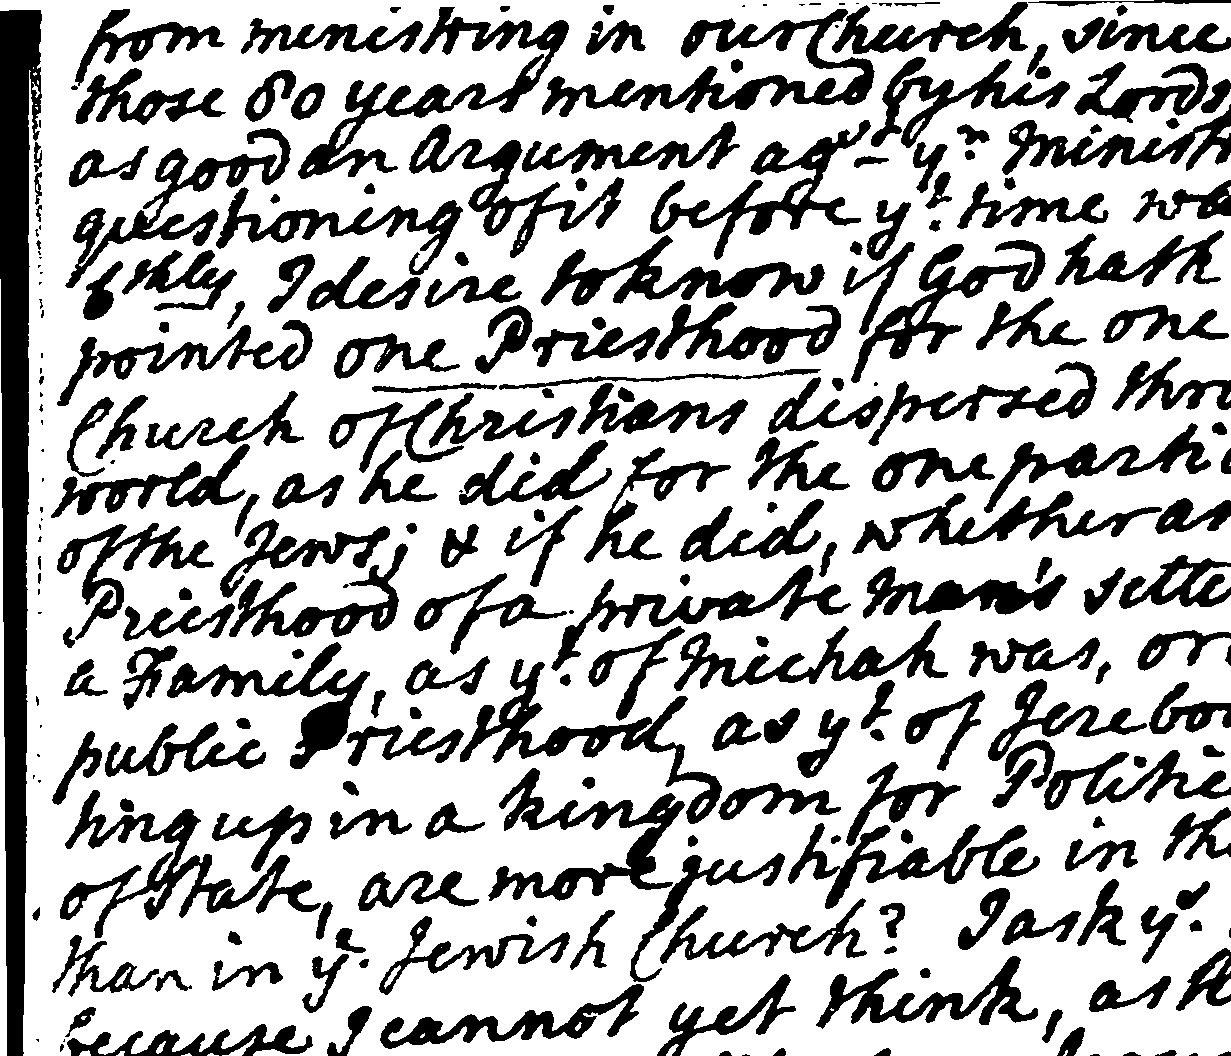 from menistring in our Church, since
those 80 years mentioned by his Lords
as good an Argument agst yr Minist
questioning of it before yt time wa
6thly, I desire to know if God hath
pointed one Priesthood for the one
Church of Christians dispersed thro
world, as he did for the one parti
of the Jews; & if he did, whether an
Priesthood of a private man's sette
a Family, as yt of Michah was, or
public Priesthood, as yt of Jerebo
ting up in a kingdom for Politic
of State, are more justifiable in th
than in ye Jewish Church? I ask
because I cannot yet think, as